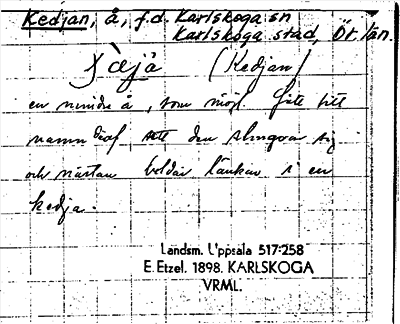 Kedjan, å, f.d. Karlskoga sn
Karlskoga stad, Ör. län.
(Kedjan)
en mindre å, som möjl. fått sitt
namn deraf, att den slingrar sig
och nästan bildar länkar i en
kedja.
Landsm. Uppsala 517:258
E. Etzel. 1898. KARLSKOGA
VRML.